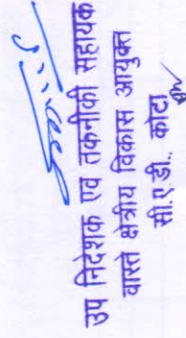 उप निदेशक एवं तकनीकी सहायक
वास्ते क्षेत्रीय विकास आयुक्त
सी.ए.डी.. कोटा